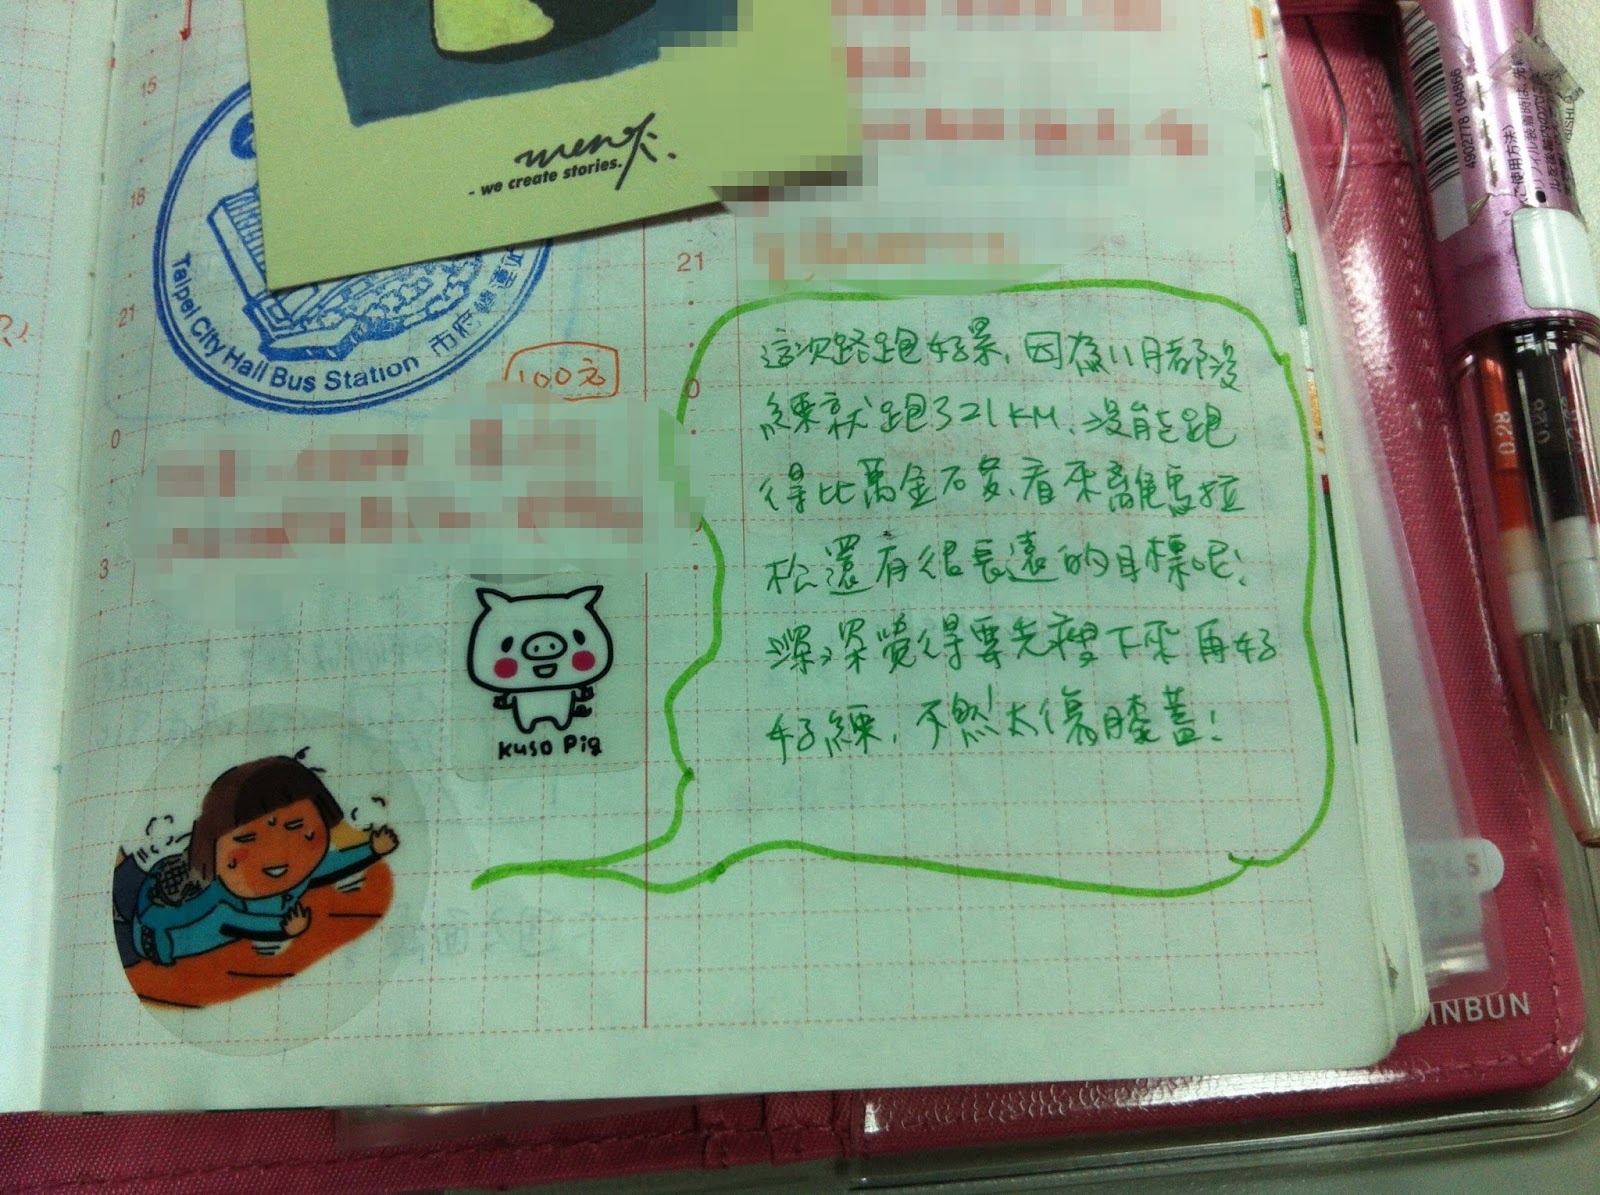 15
18
21
0
3
meng大.
- we create stories.
Taipei City Hall Bus Station 市府轉運站
100元
21
0
這次路跑好累、因為11月都沒
練就跑了21KM、沒能跑
得比萬金石好、看來離馬拉
松還有很長遠的目標呢!
深深覺得要先瘦下來再好
好練、不然太傷膝蓋!
Kuso Pig
4902778 104866
〈ご使用方法〉
0.28
0.28
INBUN